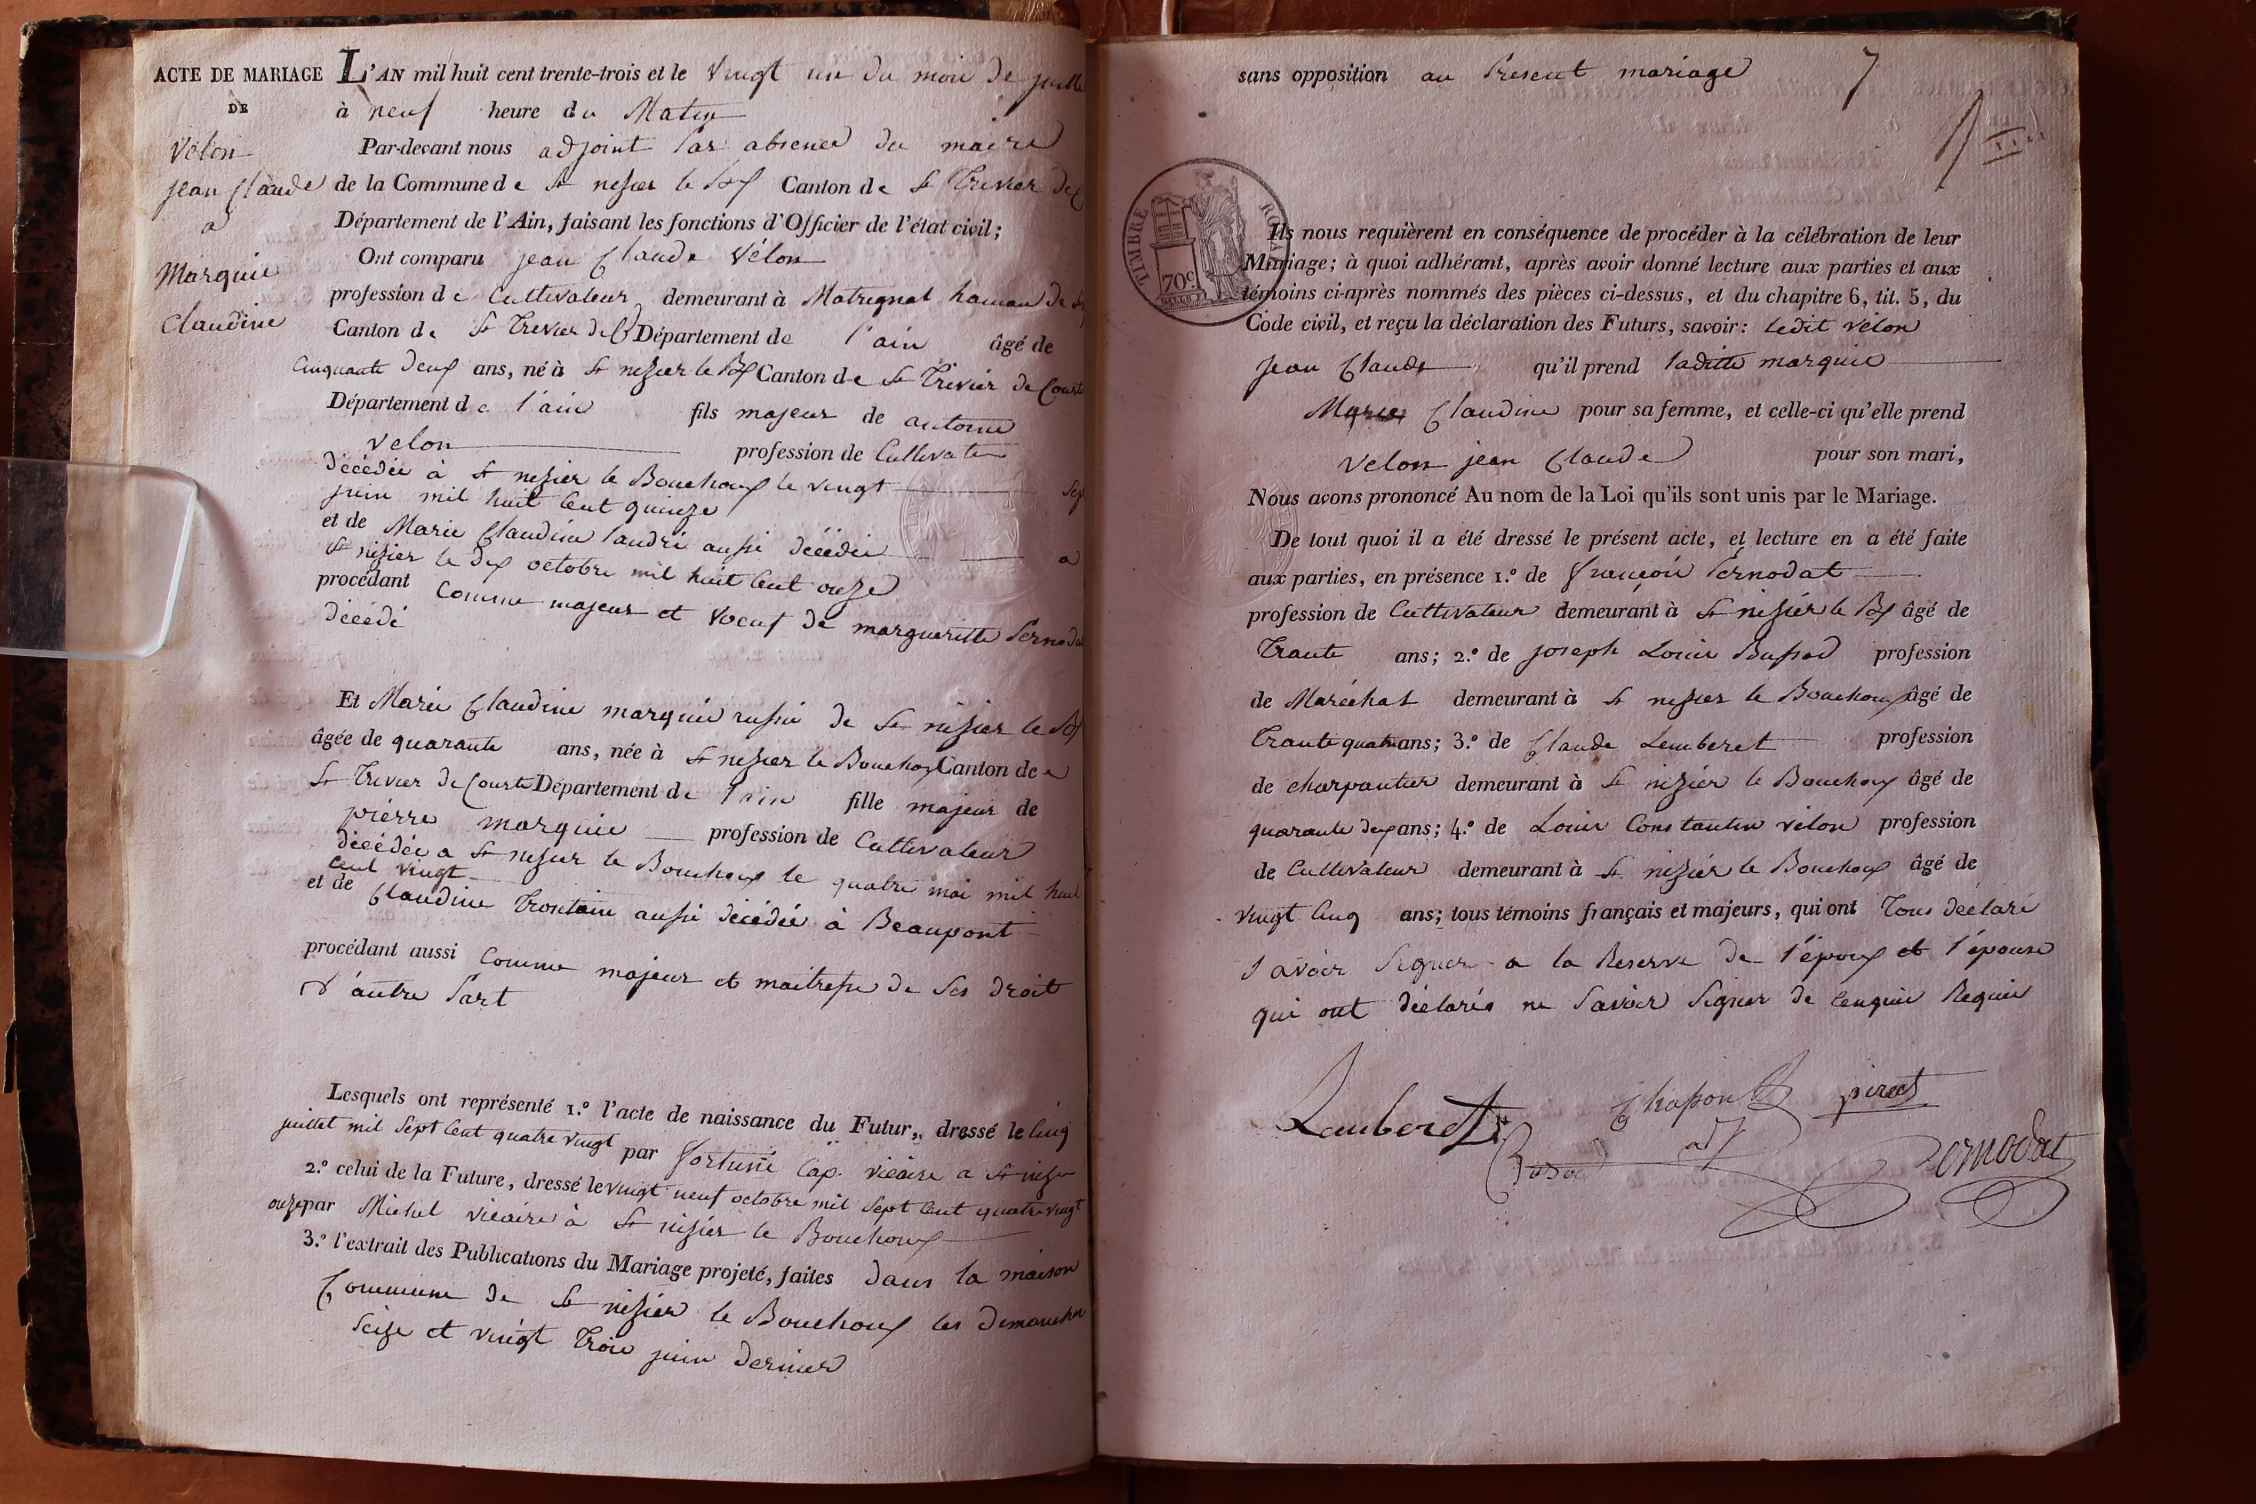 ACTE DE MARIAGE
DE
Vélon
jean Claude
a
Marquie
Claudine
L'AN mil huit cent trente-trois et le vingt un du mois de juillet
à neuf heure du Matin
Par-devant nous adjoint par absence du maire
de la Commune de St nesier le Bx Canton de St Trivier de C
Département de l'Ain, faisant les fonctions d'Officier de l'état civil;
Ont comparu jean Claude Vélon
profession de Cultivateur demeurant à Matrignat hamau de St
Canton de St Trivier de C Département de l'ain âgé de
Cinquante deux ans, né à St nesier le Bx Canton de St Trivier de Courte
Département de l'ain fils majeur de antoine
velon profession de Cultivate
décédée à St nesier le Bouchoux le vingt sep
juin mil huit Cent quinze
et de Marie Claudine landré aussi décédée a
St nisier le dix octobre mil huit Cent onze
procédant Comme majeur et voeuf de margueritte Pernodat
décédé
Et Marie Claudine marquie aussi de St nisier le Bx
âgée de quarante ans, née à St nesier le Bouchoux Canton de
St Trivier de Courte Département de l'ain fille majeur de
pierre marquie profession de Cultivateur
décédée a St nesier le Bouchoux le quatre mai mil huit
Cent vingt
et de Claudine Trontain aussi décédée à Beaupont
procédant aussi Comme majeur et maitresse de Ses droit
d'autre Part
Lesquels ont représenté 1.º l'acte de naissance du Futur, dressé le Cinq
juillet mil Sept Cent quatre vingt par fortuné Cap. vicaire a St nizier
2.º celui de la Future, dressé le vingt neuf octobre mil Sept Cent quatre vingt
onze par Michel vicaire à St nisier le Bouchoux
3.º l'extrait des Publications du Mariage projeté, faites dans la maison
Commune de St nesier le Bouchoux les dimanche
Seize et vingt Trois juin dernier
sans opposition au Présent mariage 7
TIMBRE ROYAL
70c.
Ils nous requièrent en conséquence de procéder à la célébration de leur
Mariage; à quoi adhérant, après avoir donné lecture aux parties et aux
témoins ci-après nommés des pièces ci-dessus, et du chapitre 6, tit. 5, du
Code civil, et reçu la déclaration des Futurs, savoir: ledit vélon
jean Claude qu'il prend laditte marquie
Claudine pour sa femme, et celle-ci qu'elle prend
velon jean Claude pour son mari,
Nous avons prononcé Au nom de la Loi qu'ils sont unis par le Mariage.
De tout quoi il a été dressé le présent acte, et lecture en a été faite
aux parties, en présence 1.º de françois Pernodat
profession de Cultivateur demeurant à St nesier le Bx âgé de
Trante ans; 2.º de joseph Louis Bussod profession
de Maréchal demeurant à St nesier le Bouchoux âgé de
Trante quatre ans; 3.º de Claude Lemberet profession
de charpantier demeurant à St nizier le Bouchoux âgé de
quarante deux ans; 4.º de Louis Constantin vélon profession
de Cultivateur demeurant à St nizier le Bouchoux âgé de
vingt Cinq ans; tous témoins français et majeurs, qui ont Tous déclaré
Savoir Signer a la Reserve de l'époux et l'épouse
qui ont déclarés ne Savoir Signer de Cenquie Requis
Lauberet
Chapon
pirat
adj
Pernodat